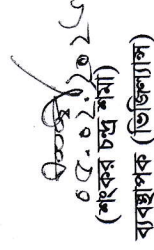 ০৫.০২.২০২৫
(শংকর চন্দ্র শর্মা)
ব্যবস্থাপক (ভিজিল্যান্স)